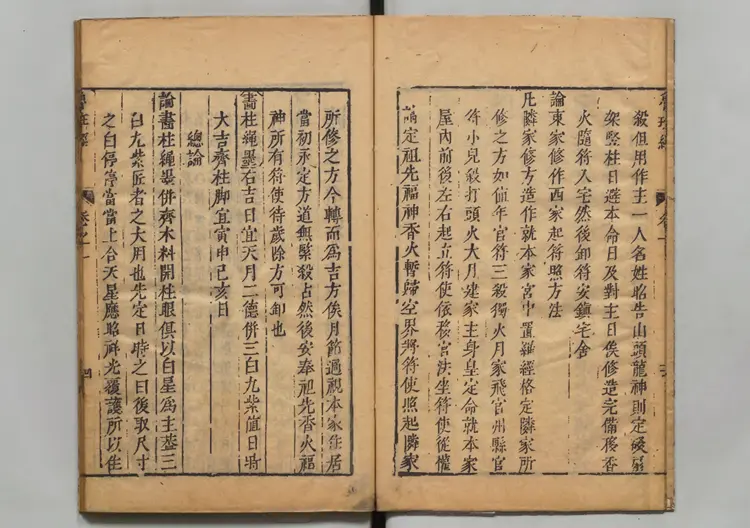 殺但用作主一人名姓昭告山頭龍神則定磉扇
架竪柱日避本命日及對主日俟修造完備移香
火隨符入宅然後卸符安鎮宅舍
論東家修作西家起符照方法
凡隣家修方造作就本家宮中置羅經格定隣家所
修之方如值年官符三殺獨火月家飛宮州縣官
符小兒殺打頭火大月建家主身皇定命就本家
屋內前後左右起立符使依移宮法坐符使從權
請定祖先福神香火暫歸空界將符使照起隣家
所修之方今轉而爲吉方俟月節過視本家住居
當初永定方道無緊殺占然後安奉祖先香火福
神所有符使待歲除方可卸也
畵柱繩墨右吉日宜天月二德併三白九紫值日時
大吉齊柱脚宜寅申巳亥日
總論
論畵柱繩墨併齊木料開柱眼俱以白星爲主葢三
白九紫匠者之大用也先定日時之白後取尺寸
之白停停當當上合天星應昭祥光覆護所以住